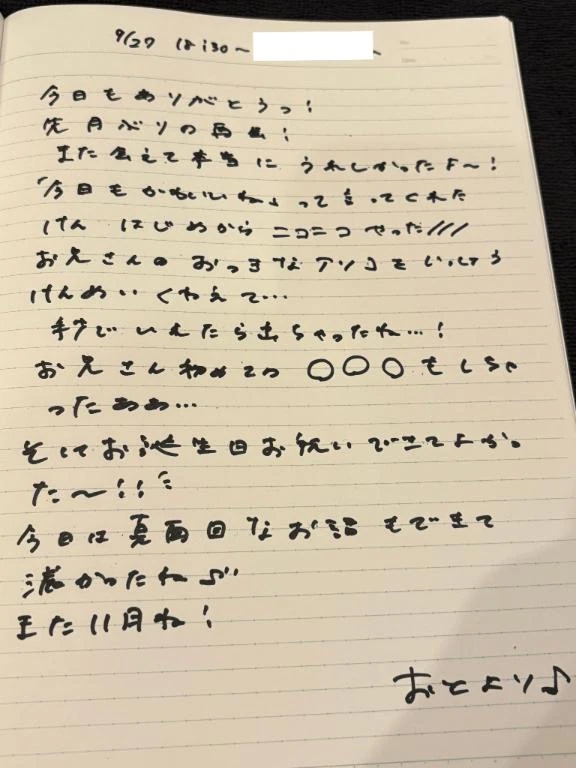 9/27 18:30〜
今日もありがとうっ!
先月ぶりの再会!
また会えて本当にうれしかったよ〜!
「今日もかわいいね」って言ってくれた
けん はじめからニコニコやった///
お兄さんのおっきなアソコをいっしょう
けんめいくわえて...
手でいれたら出ちゃったね...!
お兄さん初めての〇〇〇もしちゃ
ったぁぁ...
そしてお誕生日お祝いできてよかっ
た〜!!
今日は真面目なお話もできて
濃かったね♪
また11月ね!
おとより♪